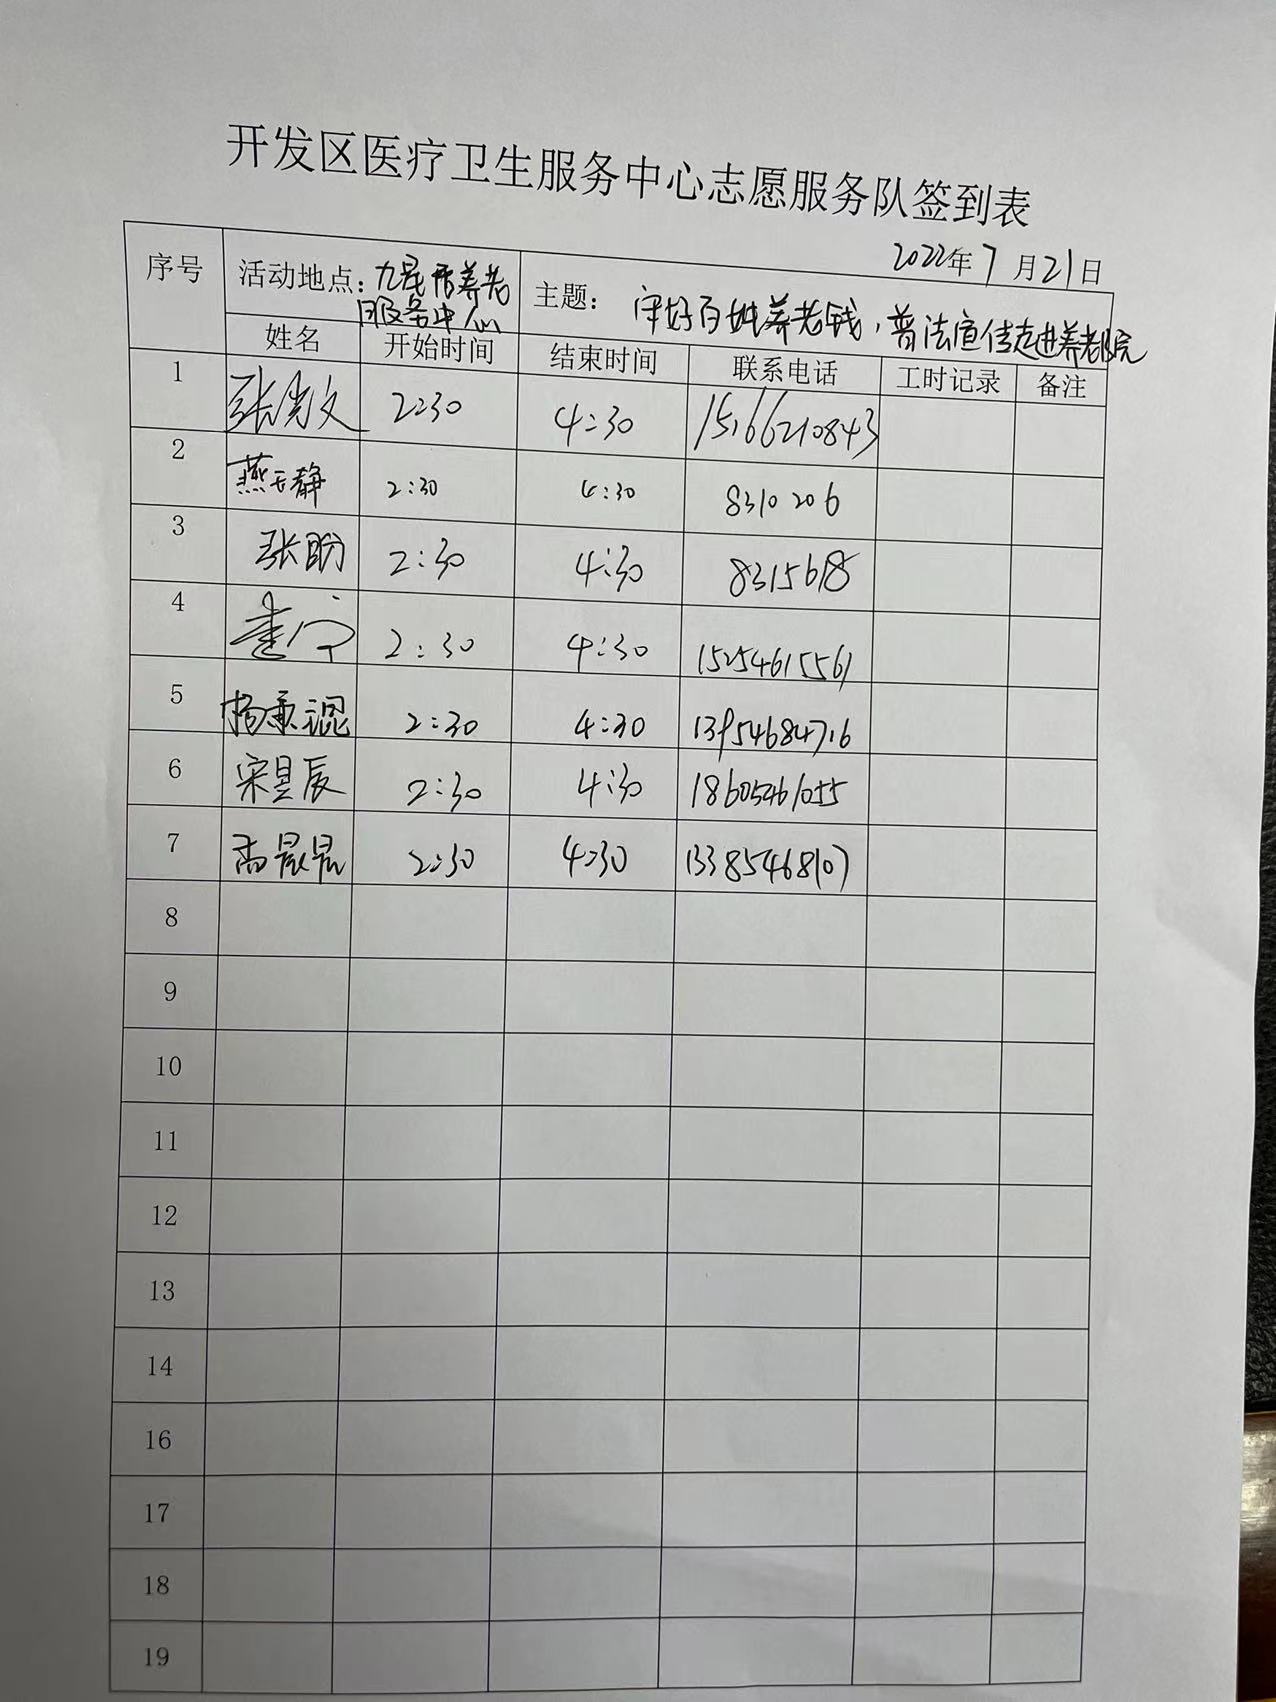 开发区医疗卫生服务中心志愿服务队签到表
2022年7月21日
序号 活动地点：养老 主题：守好百姓养老钱，普法宣传走进养老院
服务中心
姓名 开始时间 结束时间 联系电话 工时记录 备注
1 张 文 2:30 4:30 15166210843
2 燕 静 2:30 4:30 8310206
3 张盼 2:30 4:30 8315618
4 2:30 4:30 15254615561
5 杨 2:30 4:30 13954684716
6 宋昱辰 2:30 4:30 18605461055
7 高晨晨 2:30 4:30 13385468107
8
9
10
11
12
13
14
16
17
18
19